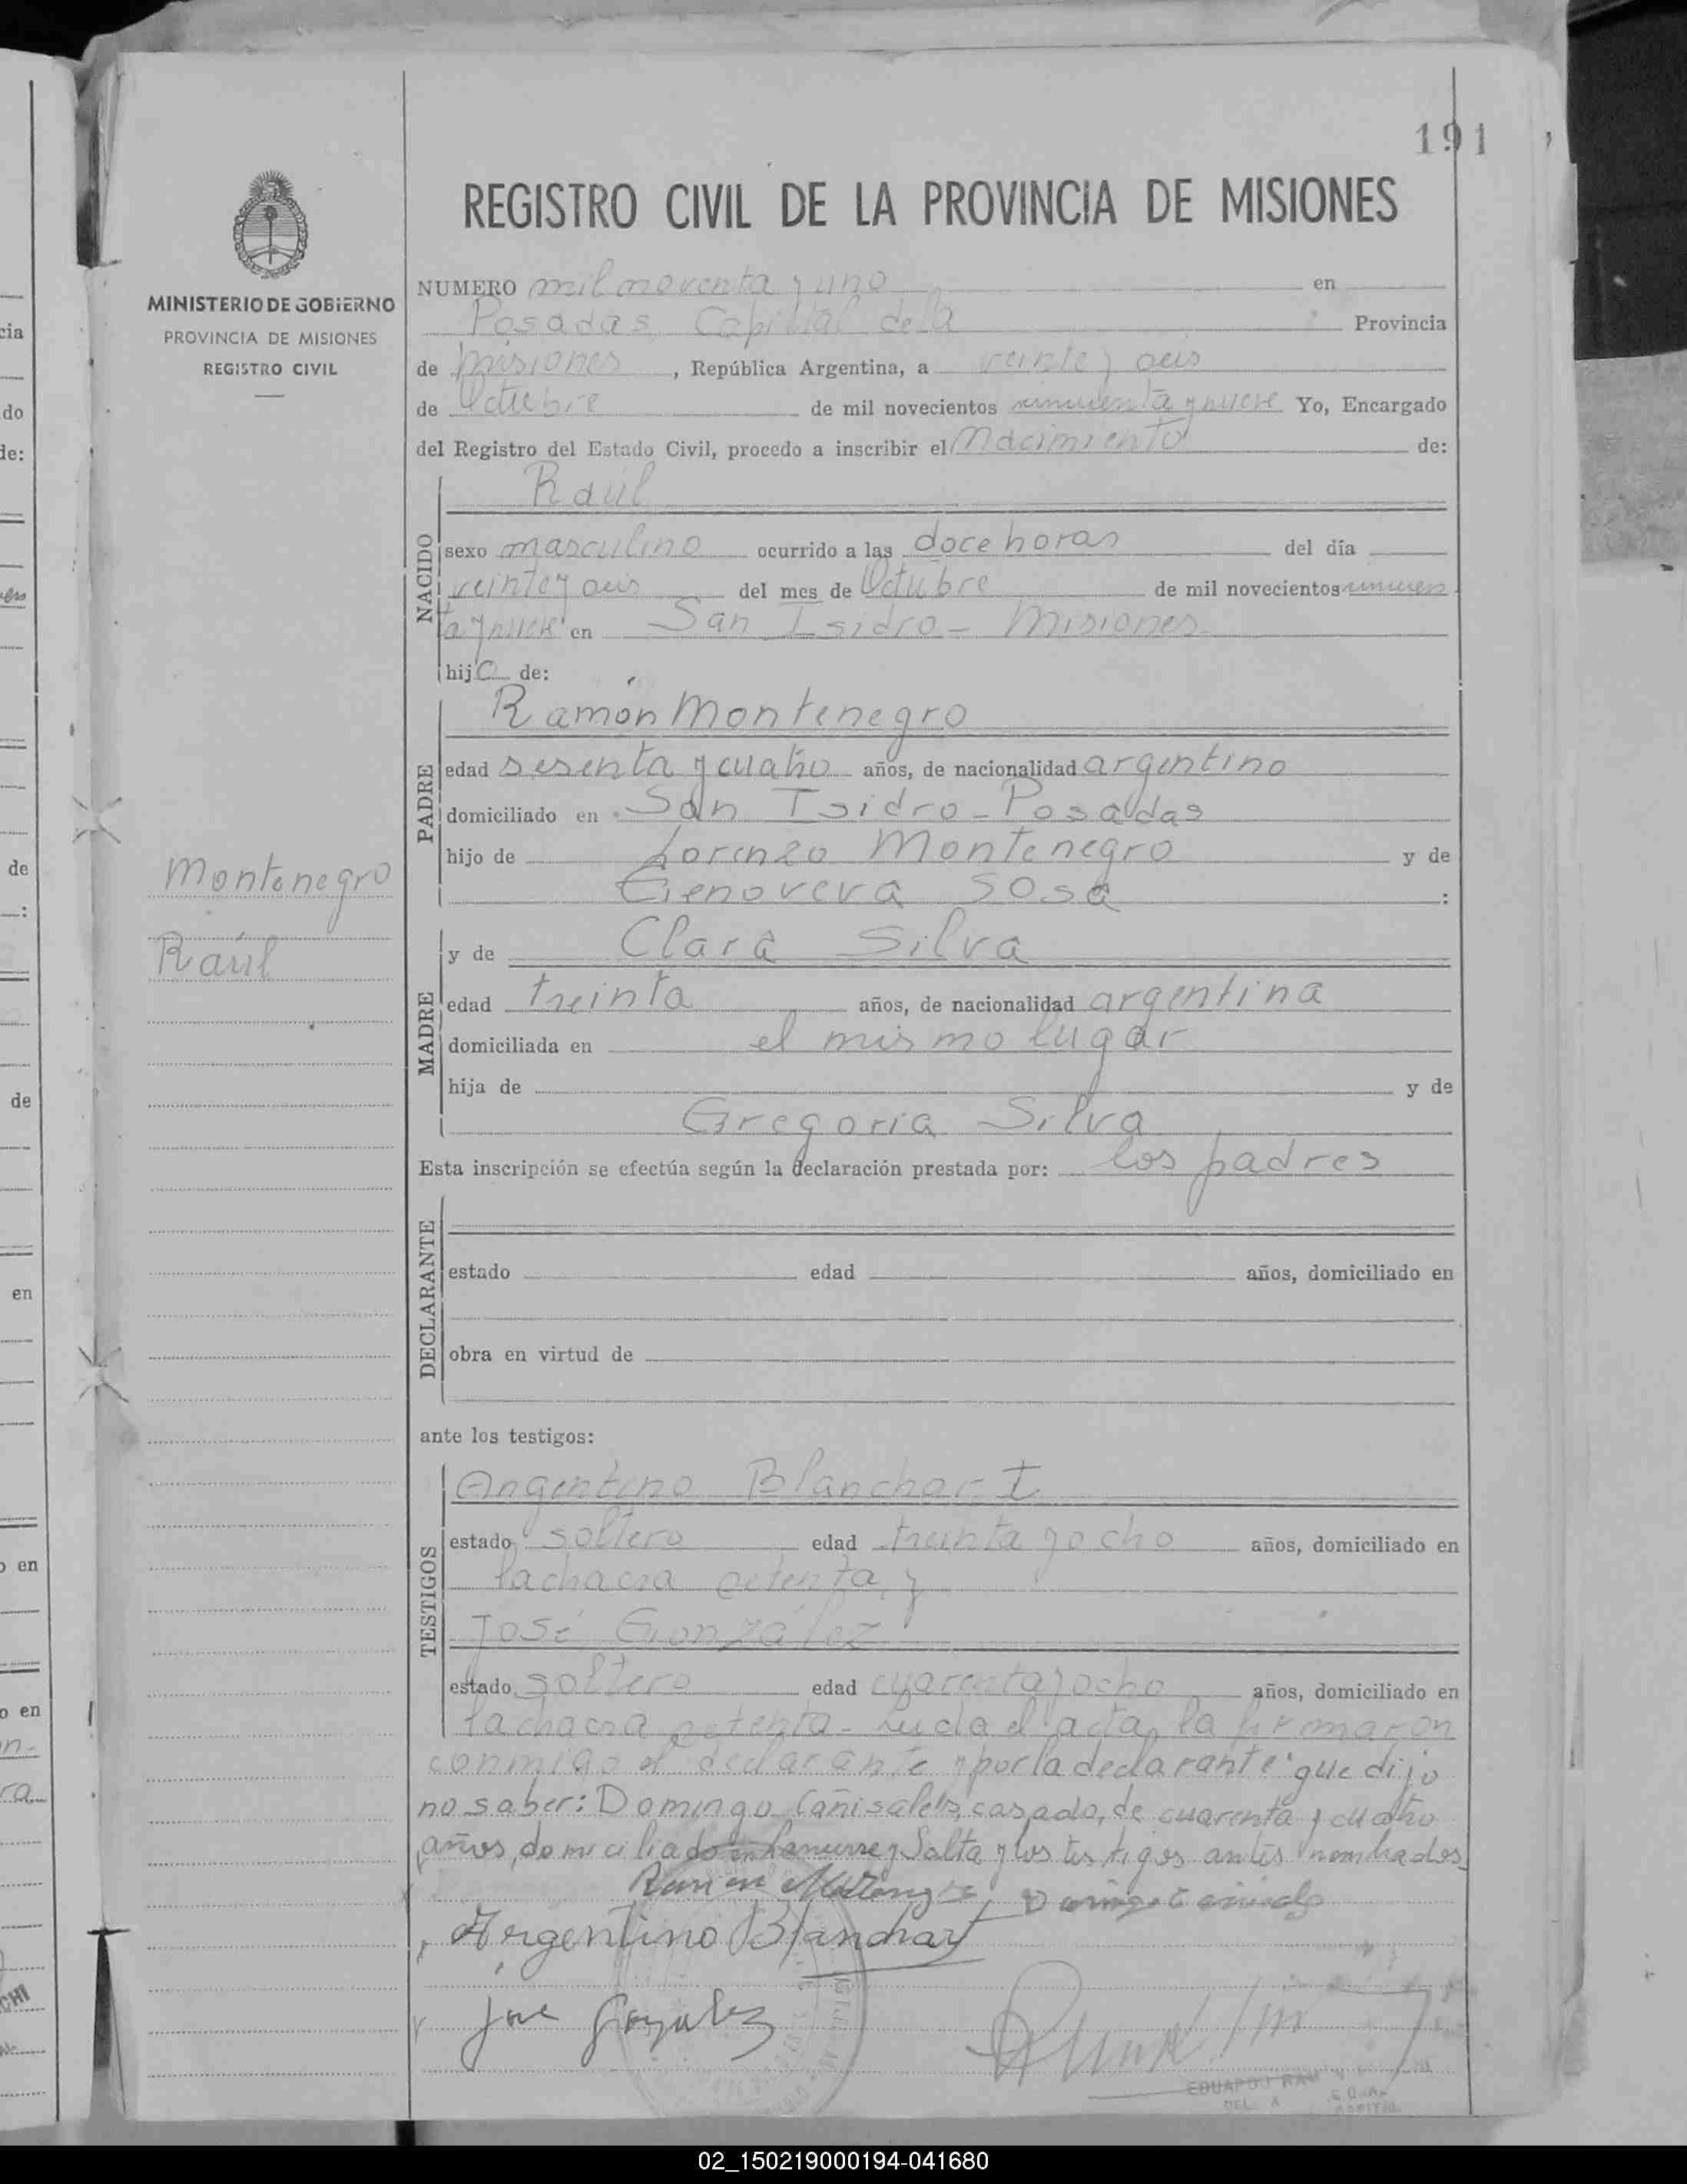 191
REGISTRO CIVIL DE LA PROVINCIA DE MISIONES
MINISTERIO DE GOBIERNO
PROVINCIA DE MISIONES
REGISTRO CIVIL
Montenegro
Raúl
NUMERO mil noventa y uno en
Posadas, Capital de la Provincia
de Misiones, República Argentina, a veinte y seis
de Octubre de mil novecientos cincuenta y nueve Yo, Encargado
del Registro del Estado Civil, procedo a inscribir el Nacimiento de:
NACIDO
Raúl
sexo masculino ocurrido a las doce horas del día
veinte y seis del mes de Octubre de mil novecientos cincuen
ta y nueve en San Isidro - Misiones
hijo de:
PADRE
Ramón Montenegro
edad sesenta y cuatro años, de nacionalidad argentino
domiciliado en San Isidro - Posadas
hijo de Lorenzo Montenegro y de
Genoveva Sosa :
MADRE
y de Clara Silva
edad treinta años, de nacionalidad argentina
domiciliada en el mismo lugar
hija de y de
Gregoria Silva
Esta inscripción se efectúa según la declaración prestada por: los padres
DECLARANTE
estado edad años, domiciliado en
obra en virtud de
ante los testigos:
TESTIGOS
Argentino Blanchart
estado soltero edad treinta y ocho años, domiciliado en
la chacra setenta y
José González
estado soltero edad cuarenta y ocho años, domiciliado en
la chacra setenta - Leida el acta, la firmaron
conmigo el declarante y por la declarante que dijo
no saber: Domingo casado, de cuarenta y cuatro
años, domiciliado en y Salta y los testigos antes nombrados
Argentino Blanchart
Jose Gonzalez
02_150219000194-041680